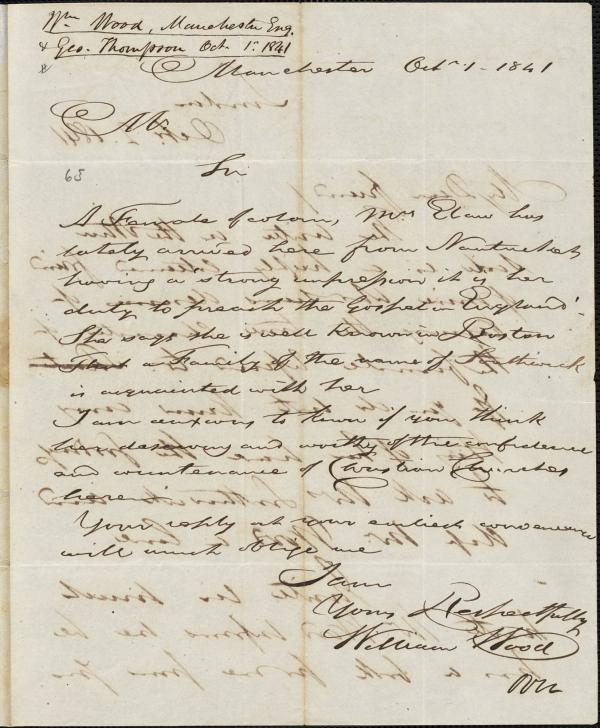 Wm Wood, Manchester Eng.
& Geo. Thompson Oct. 1st 1841
Manchester Octr 1 - 1841
Mr.
Sir
63
A Female of colour, Mrs Elaw has
lately arrived here from Nantucket
having a strong impression it is her
duty to preach the Gospel in England.
She says she is well known in Boston
That a Family of the name of Southwick
is acquainted with her
I am anxious to know if you think
her deserving and worthy of the confidence
and countenance of Christian Churches
here
Your reply at your earliest convenience
will much oblige me
I am
Yours Respectfully
William Wood
Over